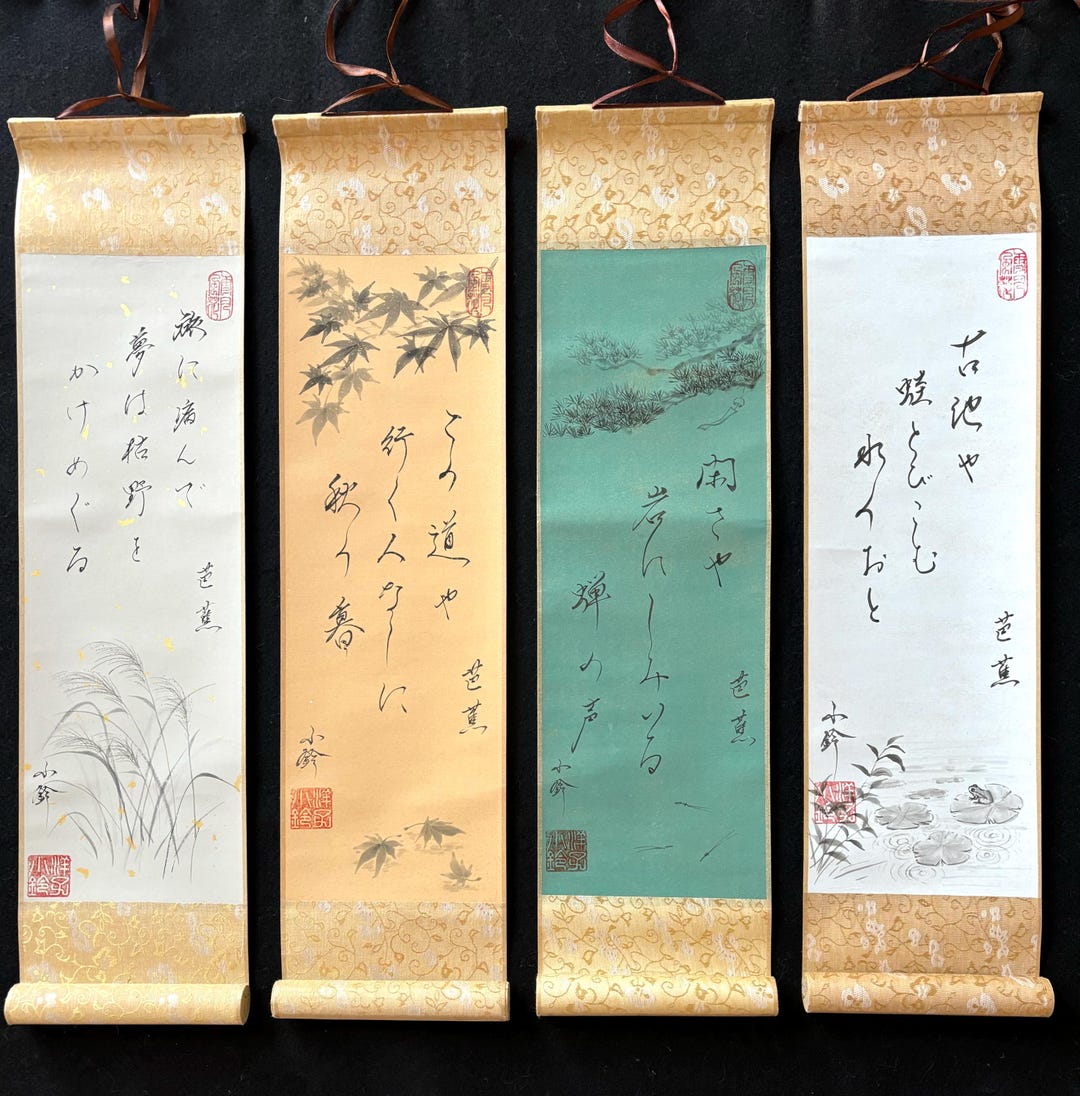 古池や
蛙とびこむ
水のおと
芭蕉
小鈴
閑さや
岩にしみいる
蝉の声
芭蕉
小鈴
この道や
行く人なしに
秋の暮
芭蕉
小鈴
旅に病んで
夢は枯野を
かけめぐる
芭蕉
小鈴